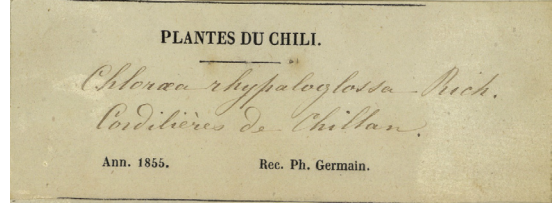 PLANTES DU CHILI.
Chloræa rhypaloglossa Rich.
Cordilières de Chillan.
Ann. 1855. Rec. Ph. Germain.